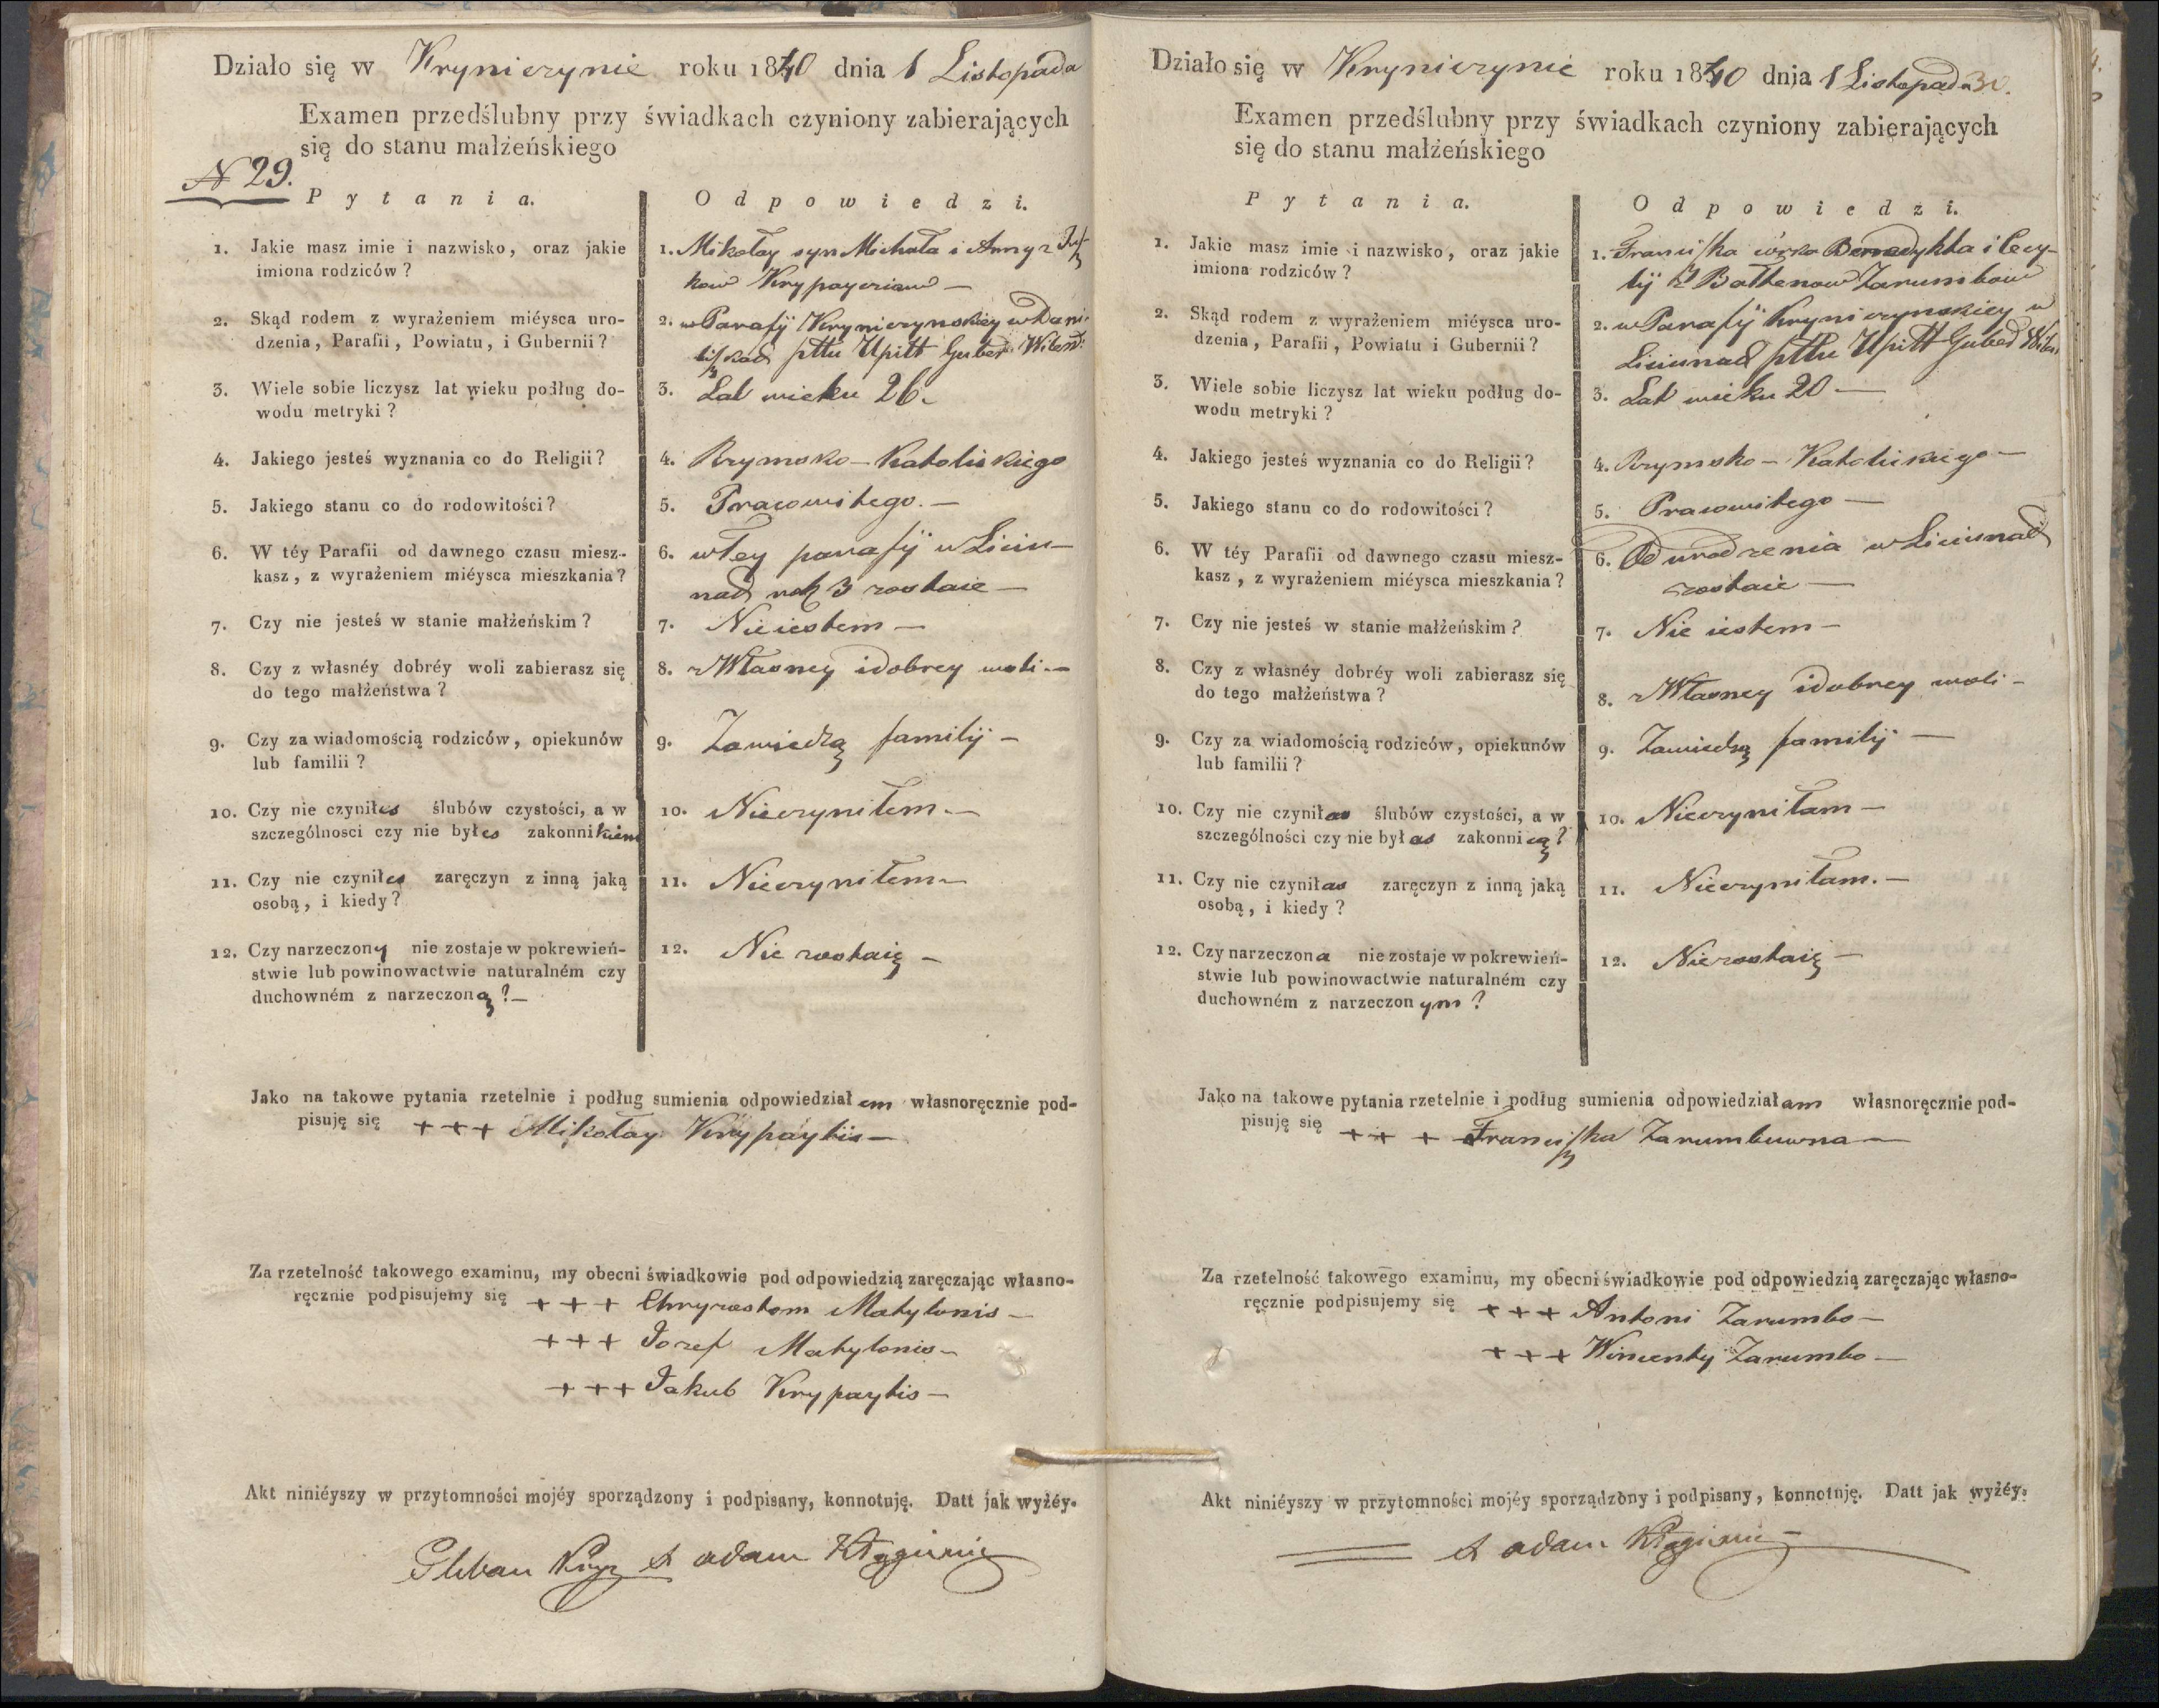 Działo się w Kryniczynie roku 1840 dnia 1 Listopada
Examen przedślubny przy świadkach czyniony zabierających
się do stanu małżeńskiego
N 29.
Pytania. Odpowiedzi.
1. Jakie masz imie i nazwisko, oraz jakie
imiona rodziców?
1. Mikołay syn Michała i Anny z
Krypayciow —
2. Skąd rodem z wyrażeniem miéysca uro-
dzenia, Parafii, Powiatu, i Gubernii?
2. w Parafij Kryniczynskiey w
pttu Upitt Guber Wilen:
3. Wiele sobie liczysz lat wieku podług do-
wodu metryki?
3. Lat wieku 26 –
4. Jakiego jesteś wyznania co do Religii?
4. Rzymsko – Katolickiego
5. Jakiego stanu co do rodowitości?
5. Pracowitego. —
6. W téy Parafii od dawnego czasu miesz-
kasz, z wyrażeniem miéysca mieszkania?
6. w Tey parafij w Liciu-
nad rok 3 zostaie —
7. Czy nie jesteś w stanie małżeńskim?
7. Nie iestem —
8. Czy z własnéy dobréy woli zabierasz się
do tego małżeństwa?
8. z Własney i dobrey woli. —
9. Czy za wiadomością rodziców, opiekunów
lub familii?
9. Zawiedzą familij —
10. Czy nie czyniłes ślubów czystości, a w
szczególnosci czy nie byłes zakonnikiem
10. Nieczyniłem. —
11. Czy nie czyniłes zaręczyn z inną jaką
osobą, i kiedy?
11. Nieczyniłem —
12. Czy narzeczony nie zostaje w pokrewień-
stwie lub powinowactwie naturalném czy
duchowném z narzeczoną? —
12. Nie zostaię —
Jako na takowe pytania rzetelnie i podług sumienia odpowiedziałem własnoręcznie pod-
pisuję się +++ Mikołay Krypaytis —
Za rzetelność takowego examinu, my obecni świadkowie pod odpowiedzią zaręczając własno-
ręcznie podpisujemy się +++ Chryzostom Matylonis —
+++ Jozef Matylonis —
+++ Jakub Krypaytis —
Akt niniéyszy w przytomności mojéy sporządzony i podpisany, konnotuję. Datt jak wyżéy.
Pleban X Adam
Działo się w Kryniczynie roku 1840 dnia 1 Listopada 30.
Examen przedślubny przy świadkach czyniony zabierających
się do stanu małżeńskiego
Pytania. Odpowiedzi.
1. Jakie masz imie i nazwisko, oraz jakie
imiona rodziców?
1. Franciszka córka Benedykta i Cecy-
lij z Zarumbow
2. Skąd rodem z wyrażeniem miéysca uro-
dzenia, Parafii, Powiatu i Gubernii?
2. w Parafij Kryniczynskiey w
Liciunach pttu Upitt Guber Wilen
3. Wiele sobie liczysz lat wieku podług do-
wodu metryki?
3. Lat wieku 20 —
4. Jakiego jesteś wyznania co do Religii?
4. Rzymsko – Katolickiego —
5. Jakiego stanu co do rodowitości?
5. Pracowitego —
6. W téy Parafii od dawnego czasu miesz-
kasz, z wyrażeniem miéysca mieszkania?
6. Od urodzenia w Liciunach
zostaie —
7. Czy nie jesteś w stanie małżeńskim?
7. Nie iestem —
8. Czy z własnéy dobréy woli zabierasz się
do tego małżeństwa?
8. z Własney i dobrey woli —
9. Czy za wiadomością rodziców, opiekunów
lub familii?
9. Zawiedzą familij —
10. Czy nie czyniłas ślubów czystości, a w
szczególności czy nie byłas zakonnicą?
10. Nieczyniłam —
11. Czy nie czyniłas zaręczyn z inną jaką
osobą, i kiedy?
11. Nieczyniłam. —
12. Czy narzeczona nie zostaje w pokrewień-
stwie lub powinowactwie naturalném czy
duchowném z narzeczonym?
12. Niezostaię —
Jako na takowe pytania rzetelnie i podług sumienia odpowiedziałam własnoręcznie pod-
pisuję się +++ Franciszka Zarumbuwna —
Za rzetelność takowego examinu, my obecni świadkowie pod odpowiedzią zaręczając własno-
ręcznie podpisujemy się +++ Antoni Zarumbo —
+++ Wincenty Zarumbo —
Akt niniéyszy w przytomności mojéy sporządzony i podpisany, konnotuję. Datt jak wyżéy.
X Adam